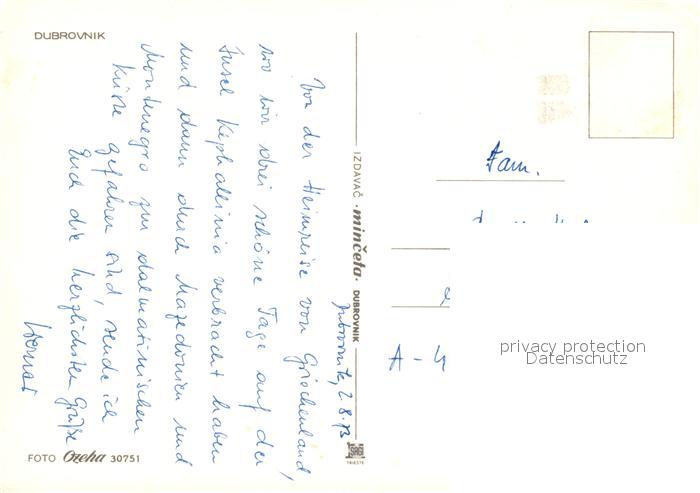 DUBROVNIK
Dubrovnik, 2.8.73
Von der Heimreise von Griechenland,
wo wir drei schöne Tage auf der
Insel Kephallinia verbracht haben
und dann durch Mazedonien und
Montenegro zur dalmatinischen
Küste gefahren sind, sende ich
Euch die herzlichsten Grüße
FOTO Ozeha 30751
IZDAVAČ „minčeta” DUBROVNIK
TRIESTE
Fam.
A - 4
privacy protection
Datenschutz